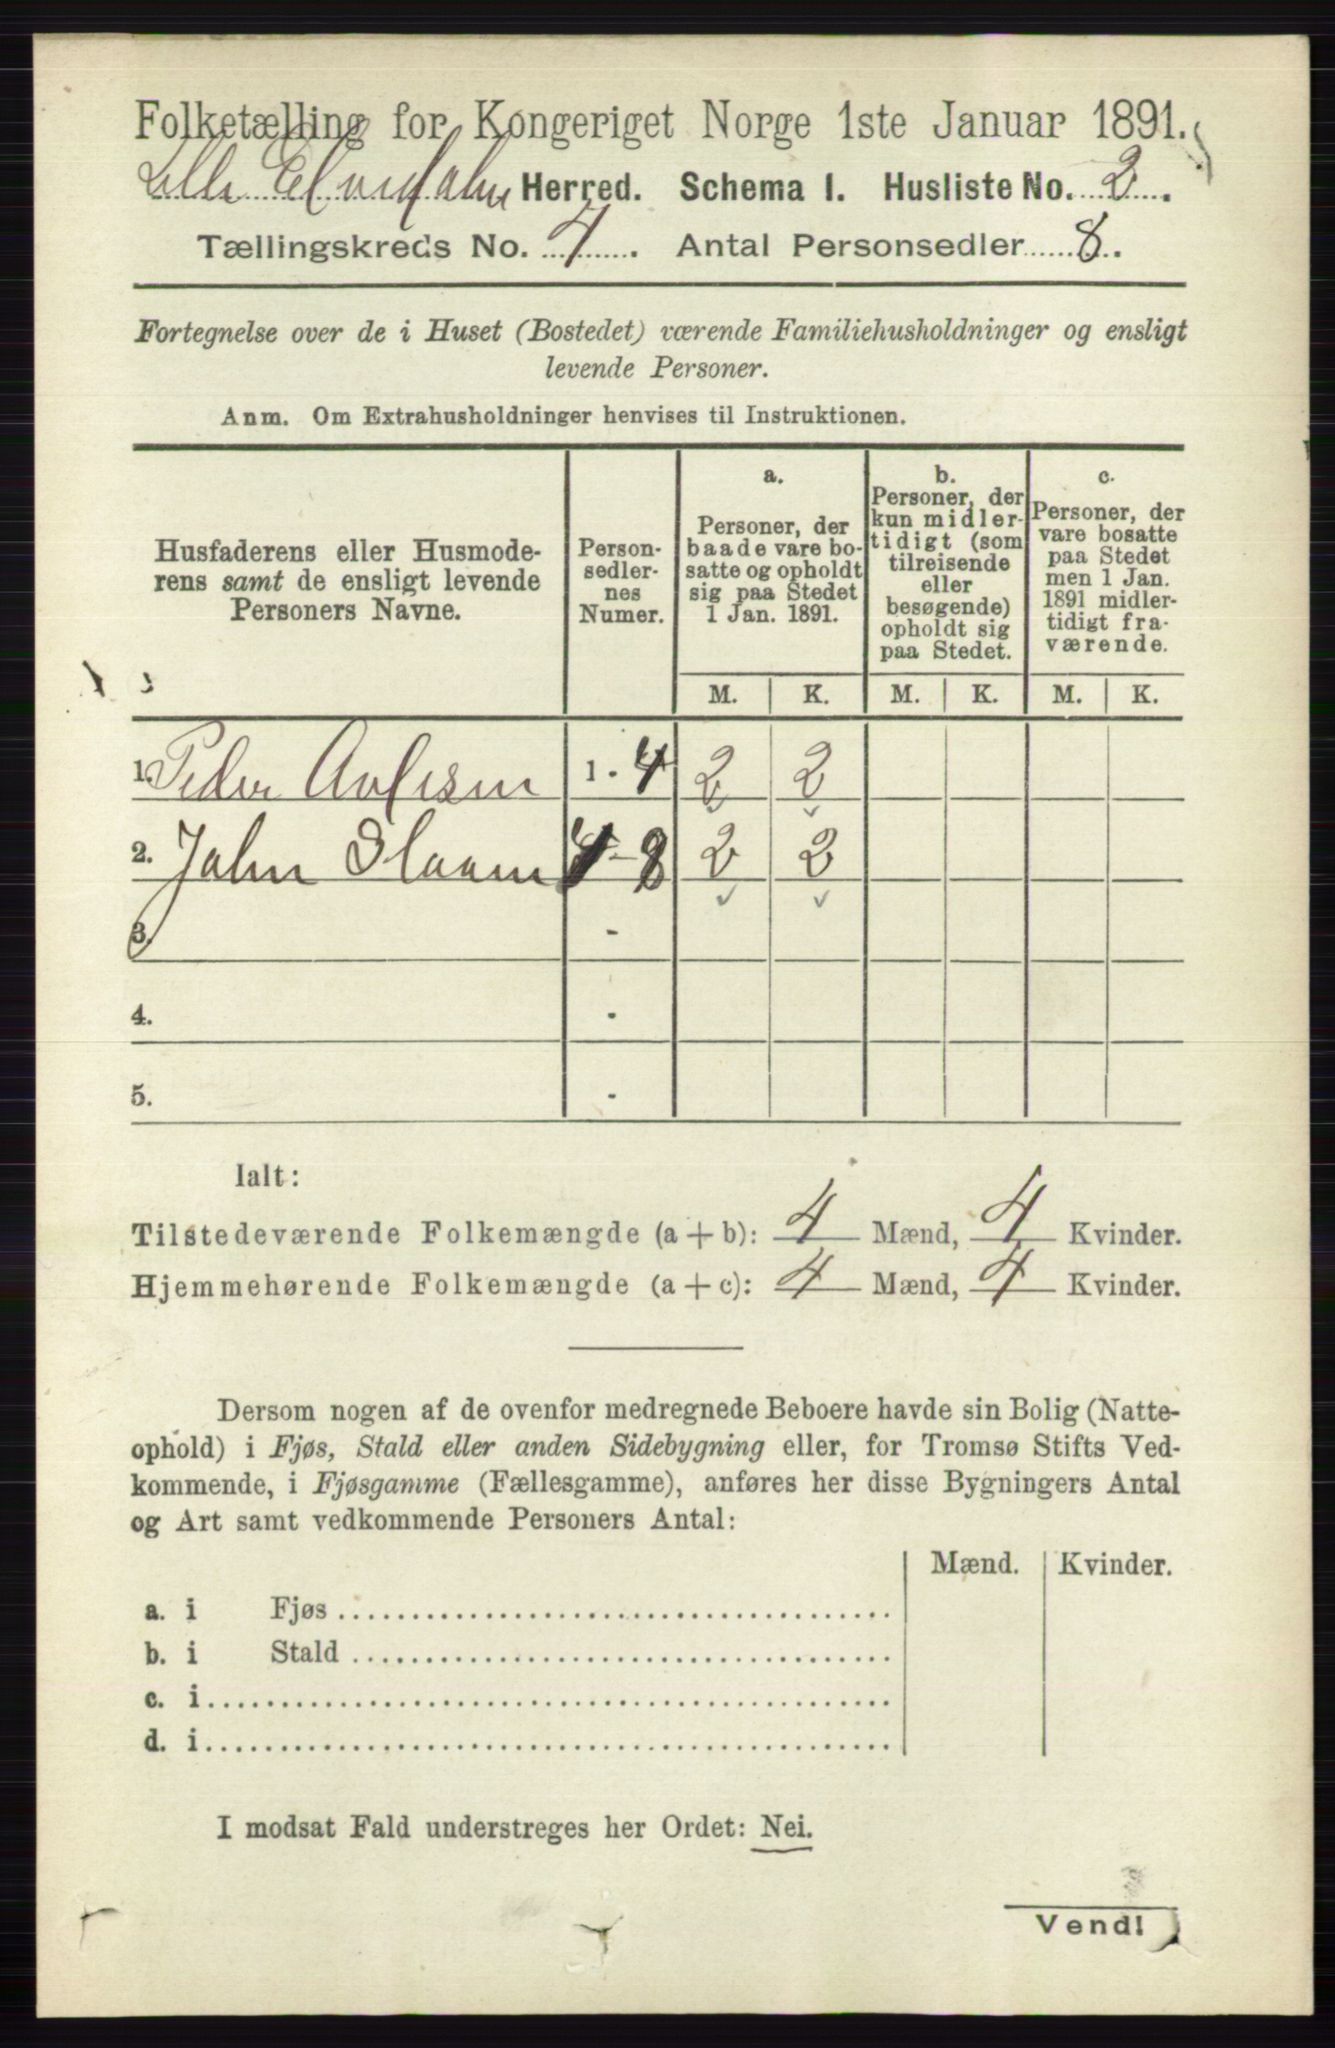 Folketælling for Kongeriget Norge 1ste Januar 1891.
Lille Elvedalen Herred. Schema I. Husliste No. 2.
Tællingskreds No. 4. Antal Personsedler 8.
Fortegnelse over de i Huset (Bostedet) værende Familiehusholdninger og ensligt
levende Personer.
Anm. Om Extrahusholdninger henvises til Instruktionen.
Husfaderens eller Husmode-
rens samt de ensligt levende
Personers Navne.
Person-
sedler-
nes
Numer.
a.
Personer, der
baade vare bo-
satte og opholdt
sig paa Stedet
1 Jan. 1891.
b.
Personer, der
kun midler-
tidigt (som
tilreisende
eller
besøgende)
opholdt sig
paa Stedet.
c.
Personer, der
vare bosatte
paa Stedet
men 1 Jan.
1891 midler-
tidigt fra-
værende.
M. K. M. K. M. K.
1. Peder 1 - 4 2 2
2. John - 8 2 2
3. -
4. -
5. -
Ialt:
Tilstedeværende Folkemængde (a + b): 4 Mænd, 4 Kvinder.
Hjemmehørende Folkemængde (a + c): 4 Mænd, 4 Kvinder.
Dersom nogen af de ovenfor medregnede Beboere havde sin Bolig (Natte-
ophold) i Fjøs, Stald eller anden Sidebygning eller, for Tromsø Stifts Ved-
kommende, i Fjøsgamme (Fællesgamme), anføres her disse Bygningers Antal
og Art samt vedkommende Personers Antal:
Mænd. Kvinder.
a. i Fjøs
b. i Stald
c. i
d. i
I modsat Fald understreges her Ordet: Nei.
Vend!